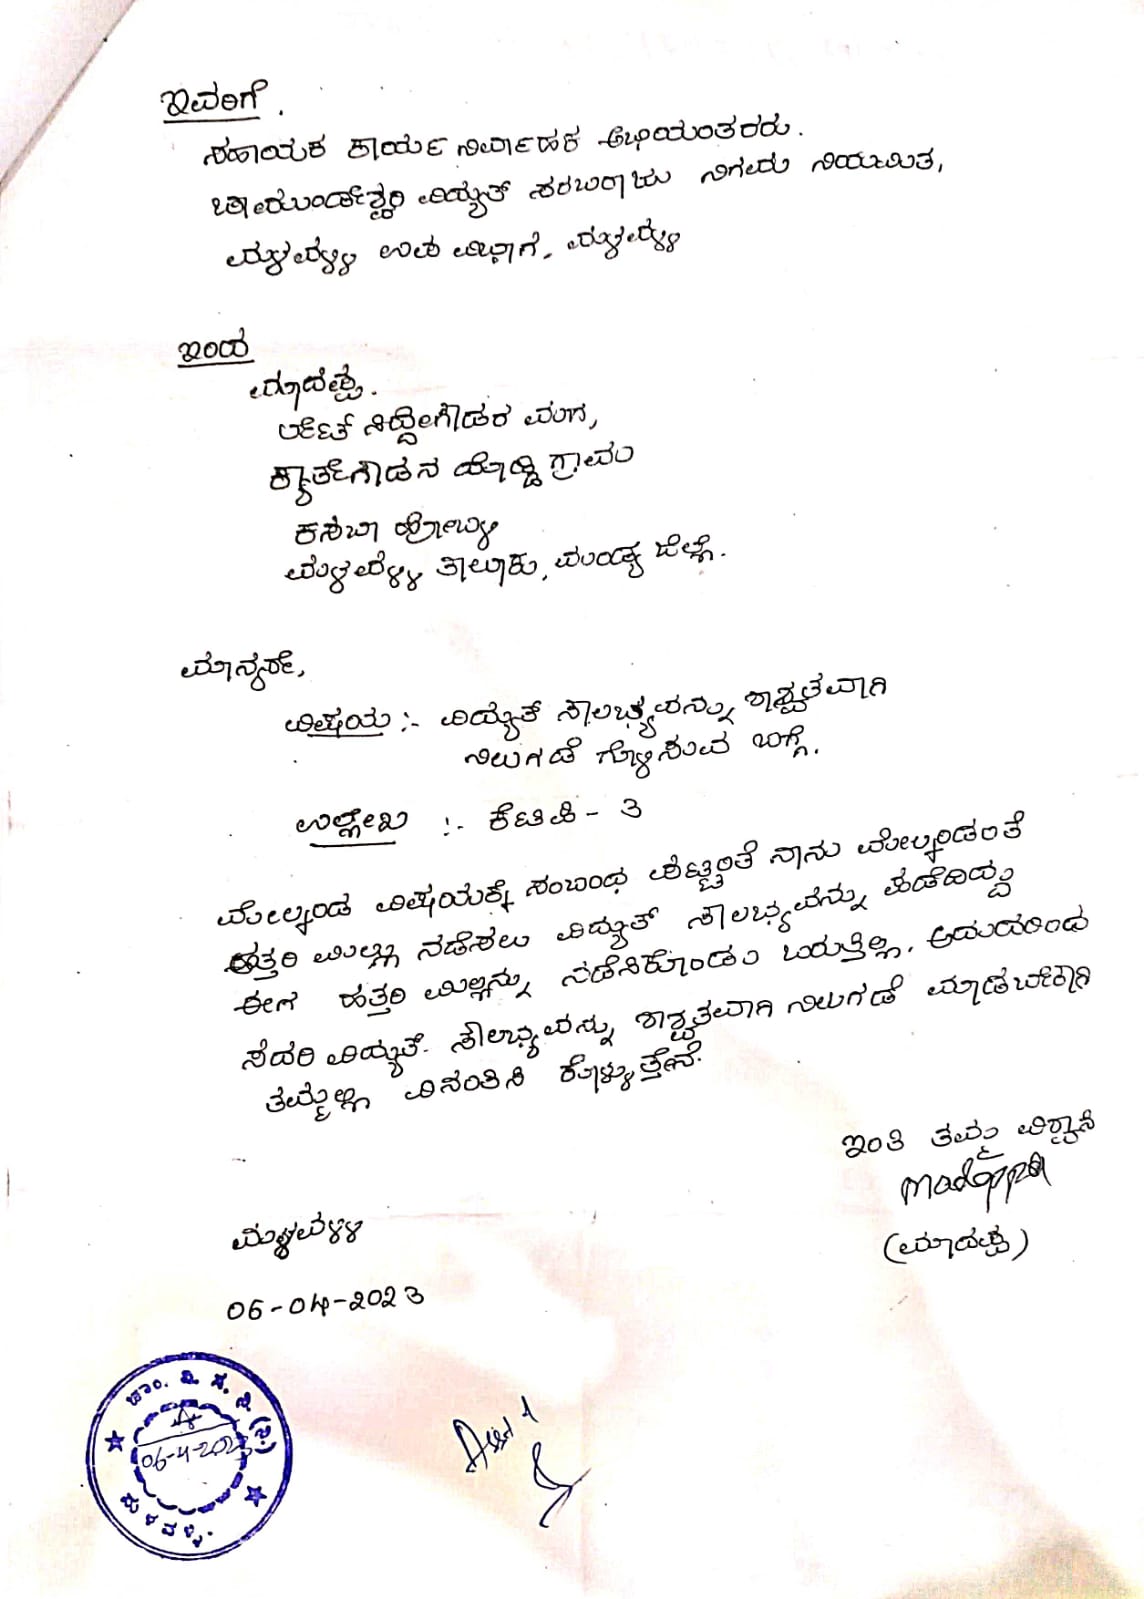 ಇವರಿಗೆ.
ಸಹಾಯಕ ಕಾರ್ಯ ನಿರ್ವಾಹಕ ಅಭಿಯಂತರರು.
ಚಾಮುಂಡೇಶ್ವರಿ ವಿದ್ಯುತ್ ಸರಬರಾಜು ನಿಗಮ ನಿಯಮಿತ,
ಮಳವಳ್ಳಿ ಉಪ ವಿಭಾಗ, ಮಳವಳ್ಳಿ
ಇಂದ
ಮಾದಪ್ಪ.
ಸಿದ್ದೇಗೌಡರ ಮಗ,
ಕ್ಯಾತೇಗೌಡನ ದೊಡ್ಡಿ ಗ್ರಾಮ
ಕಸಬಾ ಹೋಬಳಿ
ಮಳವಳ್ಳಿ ತಾಲೂಕು, ಮಂಡ್ಯ ಜಿಲ್ಲೆ.
ಮಾನ್ಯರೇ,
ವಿಷಯ :- ವಿದ್ಯುತ್ ಸೌಲಭ್ಯವನ್ನು ಶಾಶ್ವತವಾಗಿ
ನಿಲುಗಡೆ ಗೊಳಿಸುವ ಬಗ್ಗೆ.
ಉಲ್ಲೇಖ :- ಕೆಟಿಪಿ - 3
ಮೇಲ್ಕಂಡ ವಿಷಯಕ್ಕೆ ಸಂಬಂಧ ಪಟ್ಟಂತೆ ನಾನು ಮೇಲ್ಕಂಡಂತೆ
ಹತ್ತರಿ ಮಿಲ್ಲು ನಡೆಸಲು ವಿದ್ಯುತ್ ಸೌಲಭ್ಯವನ್ನು ಪಡೆದಿದ್ದು
ಈಗ ಹತ್ತರಿ ಮಿಲ್ಲನ್ನು ನಡೆಸಿಕೊಂಡು ಬರುತ್ತಿಲ್ಲ. ಆದುದರಿಂದ
ಸದರಿ ವಿದ್ಯುತ್ ಸೌಲಭ್ಯವನ್ನು ಶಾಶ್ವತವಾಗಿ ನಿಲುಗಡೆ ಮಾಡಬೇಕಾಗಿ
ತಮ್ಮಲ್ಲಿ ವಿನಂತಿಸಿ ಕೊಳ್ಳುತ್ತೇನೆ.
ಇಂತಿ ತಮ್ಮ ವಿಶ್ವಾಸಿ
madappa
(ಮಾದಪ್ಪ)
ಮಳವಳ್ಳಿ
06-04-2023
ಚಾಂ. ವಿ. ಸ. ನಿ (ನಿ.)
06-4-2023
ಮಳವಳ್ಳಿ.